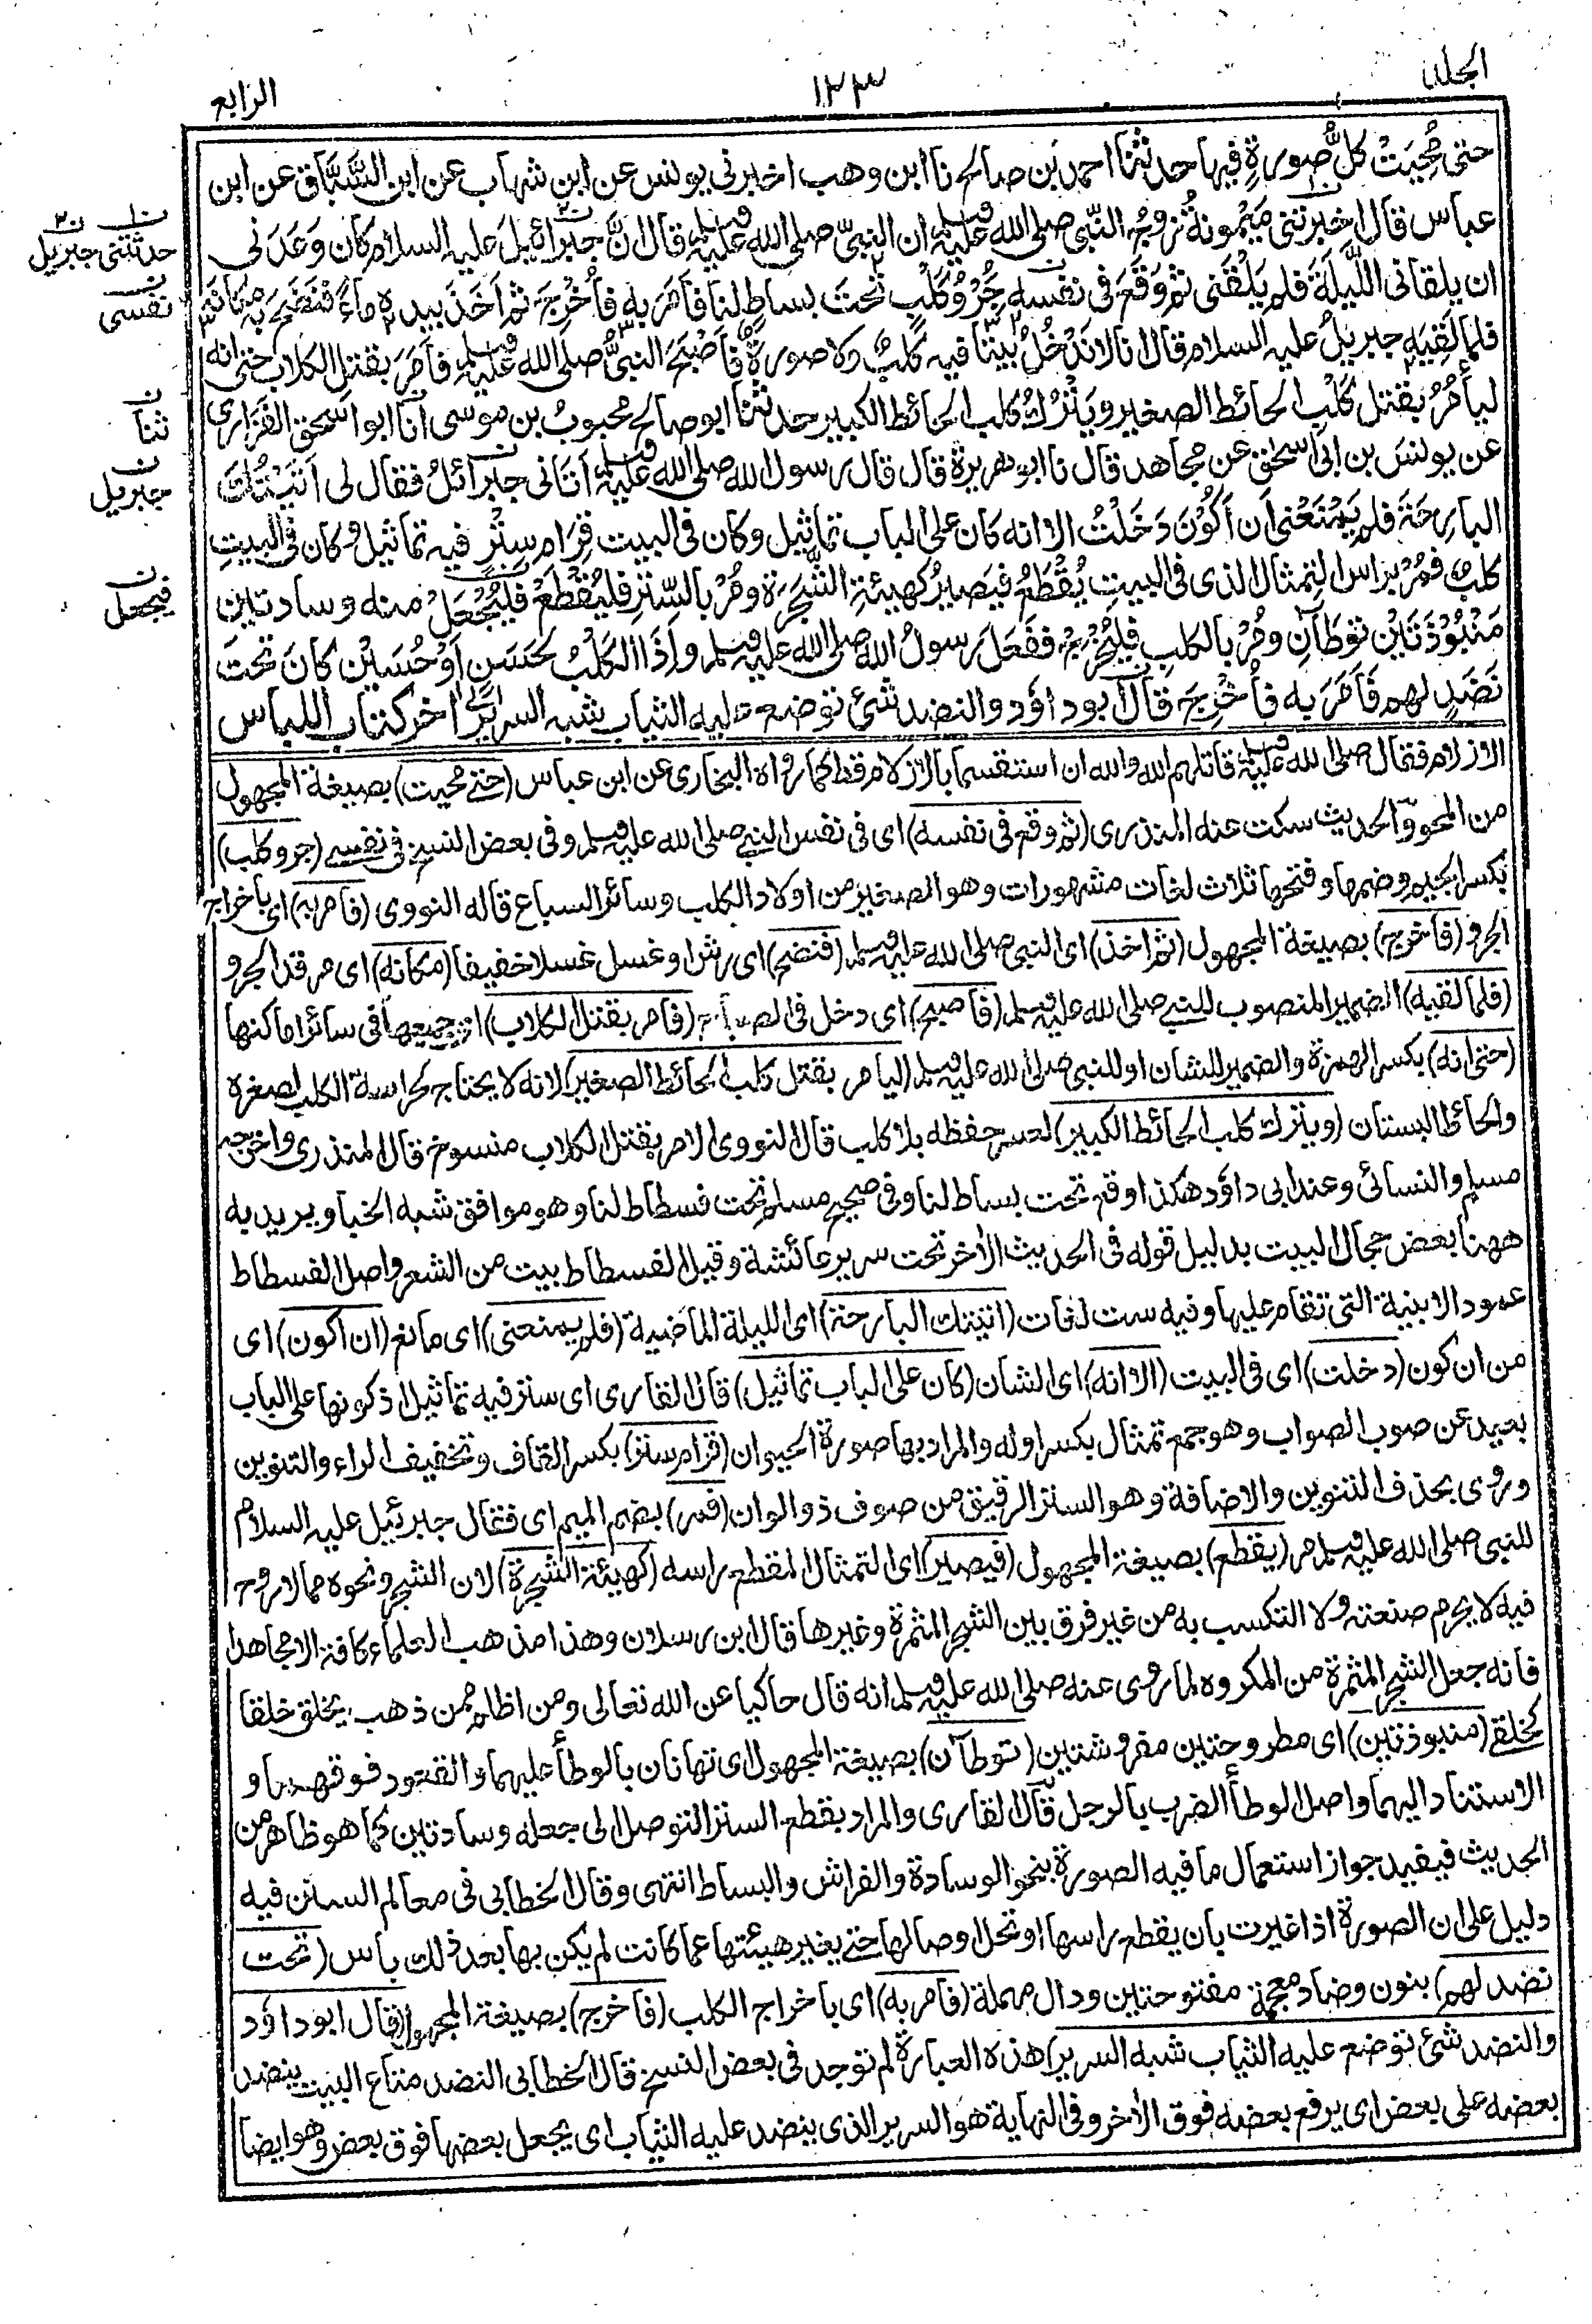 الجلد
١٢٣
الرابع
حتى مُحِيَتْ كلُّ صورةٍ فيها حدثنا احمد بن صالح نا ابن وهب اخبرنى يونس عن ابن شهاب عن ابن السَّبَّاق عن ابن
عباس قال اخبرتنى مَيْمونةُ زوجُ النبى صلى الله عليه وسلم ان النبىّ صلى الله عليه وسلم قال انَّ جبرائيلَ عليه السلام كان وَعَدَنى
ان يلقانى اللَّيلةَ فلم يَلْقَنى ثم وَقَعَ فى نفسه جُرْوُ كَلْبٍ تحتَ بساطٍ لنا فاَمَرَ به فاُخْرِجَ ثم اَخَذَ بيده ماءً فنَضَحَ به مكانَه
فلما لَقِيَه جبريلُ عليه السلام قال انا لا نَدْخُلُ بَيْتًا فيه كَلْبٌ ولا صورةٌ فاَصْبَحَ النبىُّ صلى الله عليه وسلم فاَمَرَ بقتل الكلاب حتى انه
ليأمُرُ بقتل كَلْبِ الحائط الصغير ويَتْرُكُ كلب الحائط الكبير حدثنا ابو صالح محبوبُ بن موسى انا ابو اسحق الفَزارى
عن يونسَ بن ابى اسحق عن مجاهد قال نا ابو هريرة قال قال رسول الله صلى الله عليه وسلم اَتَانى جبرائلُ فقال لى اَتَيْتُكَ
البارِحَةَ فلم يَمْنَعْنى اَن اَكُوْنَ دَخَلْتُ الا انه كان على الباب تماثيل وكان فى البيت قِرَام سِتْرٍ فيه تماثيل وكان فى البيتِ
كلبٌ فمُرْ براس التِمثال الذى فى البيتِ يُقْطَعُ فيَصيرُ كهيئةِ الشَّجَرَة ومُرْ بالسِّتْرِ فليُقْطَعْ فَلْيُجْعَلْ منه وسادتين
مَنْبُوْذَتَيْن توطَآنِ ومُرْ بالكلبِ فليُخْرَجْ ففَعَلَ رسولُ الله صلى الله عليه وسلم واِذَا الكَلْبُ لحَسَنٍ اَوْ حُسَيْن كانَ تحتَ
نَضَدٍ لهم فاَمَرَ به فاُخْرِجَ قال ابو داؤد والنضد شئ توضع عليه الثياب شبه السرير اخر كتاب اللباس
الازلام فقال صلى الله عليه وسلم قاتلهم الله والله ان استقسما بالازلام قط كما رواه البخارى عن ابن عباس (حتى محيت) بصيغة المجهول
من المحو والحديث سكت عنه المنذرى (ثم وقع فى نفسه) اى فى نفس النبى صلى الله عليه وسلم وفى بعض النسخ فى نفسى (جرو كلب)
بكسر الجيم وضمها وفتحها ثلاث لغات مشهورات وهو الصغير من اولاد الكلب وسائر السباع قاله النووى (فامر به) اى باخراج
الجرو (فاخرج) بصيغة المجهول (ثم اخذ) اى النبى صلى الله عليه وسلم (فنضح) اى رش او غسل غسلا خفيفا (مكانه) اى مرقد الجرو
(فلما لقيه) الضمير المنصوب للنبى صلى الله عليه وسلم (فاصبح) اى دخل فى الصباح (فامر بقتل الكلاب) اى جميعها فى سائر اماكنها
(حتى انه) بكسر الهمزة والضمير للشان او للنبى صلى الله عليه وسلم (ليامر بقتل كلب الحائط الصغير) لانه لا يحتاج لحراسة الكلب لصغره
والحائط البستان (ويترك كلب الحائط الكبير) لعسر حفظه بلا كلب قال النووى الامر بقتل الكلاب منسوخ قال المنذرى واخرجه
مسلم والنسائى وعند ابى داؤد هكذا وقع تحت بساط لنا وفى صحيح مسلم تحت فسطاط لنا وهو موافق شبه الخبا ويريد به
ههنا بعض حجال البيت بدليل قوله فى الحديث الاخر تحت سرير عائشة وقيل الفسطاط بيت من الشعر واصل الفسطاط
عمود الابنية التى تقام عليها وفيه ست لغات (اتيتك البارحة) اى الليلة الماضية (فلم يمنعنى) اى مانع (ان اكون) اى
من ان كون (دخلت) اى فى البيت (الا انه) اى الشان (كان على الباب تماثيل) قال القارى اى ستر فيه تماثيل اذ كونها على الباب
بعيد عن صوب الصواب وهو جمع تمثال بكسر اوله والمراد بها صورة الحيوان (قرام ستر) بكسر القاف وتخفيف الراء والتنوين
وروى بحذف التنوين والاضافة وهو الستر الرقيق من صوف ذو الوان (فمر) بضم الميم اى فقال جبرئيل عليه السلام
للنبى صلى الله عليه وسلم مر (يقطع) بصيغة المجهول (فيصير) اى التمثال المقطع راسه (كهيئة الشجرة) لان الشجر ونحوه مما لا روح
فيه لا يحرم صنعته ولا التكسب به من غير فرق بين الشجر المثمرة وغيرها قال ابن رسلان وهذا مذهب العلماء كافة الا مجاهدا
فانه جعل الشجر المثمرة من المكروه لما روى عنه صلى الله عليه وسلم انه قال حاكيا عن الله تعالى ومن اظلم ممن ذهب يخلق خلقا
كخلقى (منبوذتين) اى مطروحتين مفروشتين (توطآن) بصيغة المجهول اى تهانان بالوطأ عليهما والقعود فوقهما و
الاستناد اليهما واصل الوطأ الضرب بالرجل قال القارى والمراد بقطع الستر التوصل الى جعله وسادتين كما هو ظاهر من
الحديث فيفيد جواز استعمال ما فيه الصورة بنحو الوسادة والفراش والبساط انتهى وقال الخطابى فى معالم السنن فيه
دليل على ان الصورة اذا غيرت بان يقطع راسها او تحل اوصالها حتى يغير هيئتها عما كانت لم يكن بها بعد ذلك باس (تحت
نضد لهم) بنون وضاد معجمة مفتوحتين ودال مهملة (فامر به) اى باخراج الكلب (فاخرج) بصيغة المجهول (قال ابو داؤد
والنضد شئ توضع عليه الثياب شبه السرير) هذه العبارة لم توجد فى بعض النسخ قال الخطابى النضد متاع البيت ينضد
بعضه على بعض اى يرفع بعضه فوق الاخر وفى النهاية هو السرير الذى ينضد عليه الثياب اى يجعل بعضها فوق بعض وهو ايضا
حدثتنى جبريل
نفسى
ثنا
جبريل
فيجعل